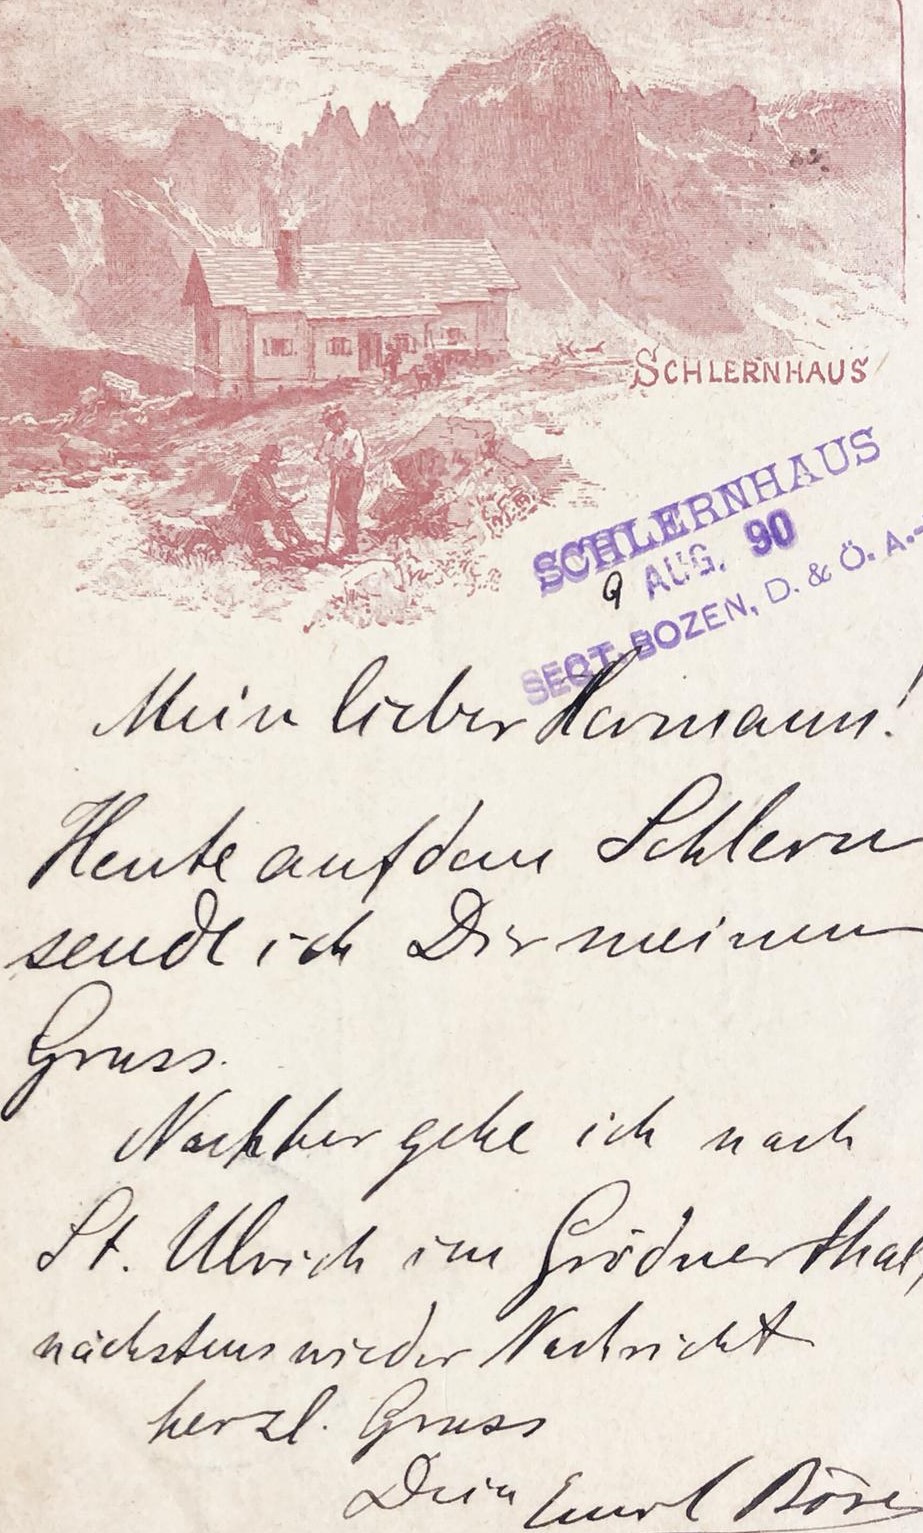 SCHLERNHAUS
SCHLERNHAUS
9 AUG. 90
SECT. BOZEN, D. & Ö. A.-
Mein lieber Hermann!
Heute auf dem Schlern
sende ich Dir meinen
Gruss.
Nachher gehe ich nach
St. Ulrich im Grödnerthal,
nächstens wieder Nachricht
herzl. Gruss
Dein Emil